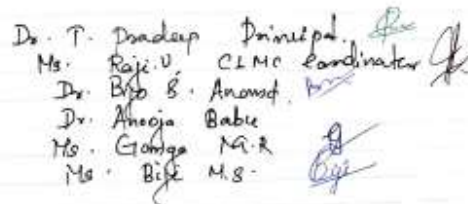 Dr. T. Pradeep Principal.
Ms. Raji.U, CLMC Coordinator
Dr. Bijo S. Anand.
Dr. Anooja Babu
Ms. Ganga M.R
Ms. Biji M.S.